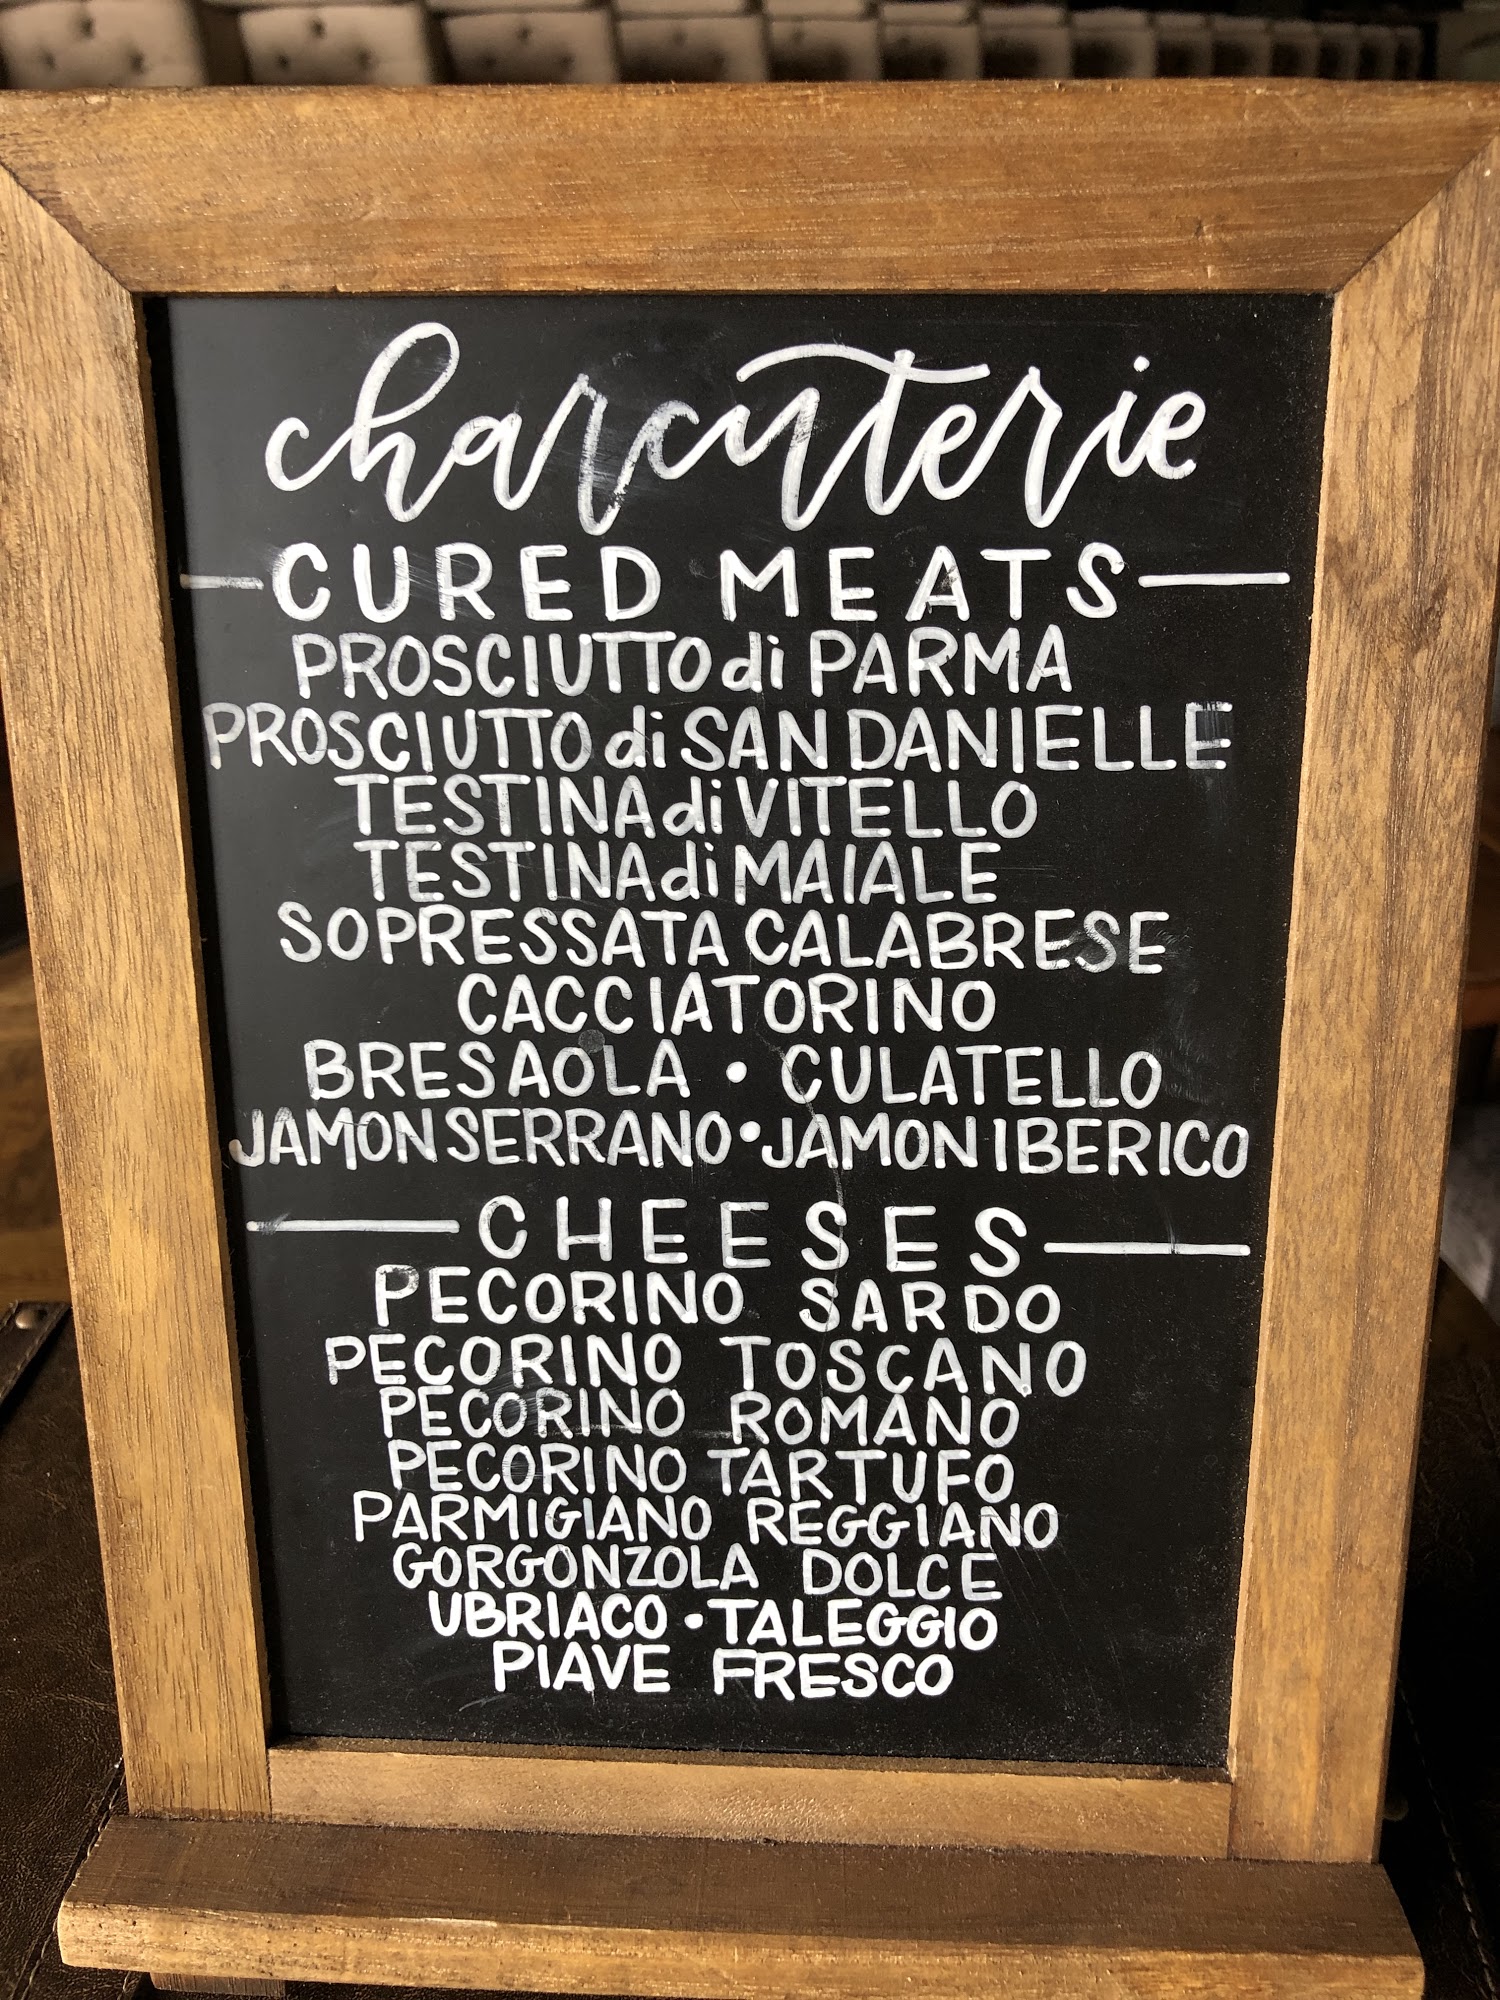 charcuterie
CURED MEATS
PROSCIUTTO di PARMA
PROSCIUTTO di SAN DANIELLE
TESTINA di VITELLO
TESTINA di MAIALE
SOPRESSATA CALABRESE
CACCIATORINO
BRESAOLA • CULATELLO
JAMON SERRANO • JAMON IBERICO
CHEESES
PECORINO SARDO
PECORINO TOSCANO
PECORINO ROMANO
PECORINO TARTUFO
PARMIGIANO REGGIANO
GORGONZOLA DOLCE
UBRIACO • TALEGGIO
PIAVE FRESCO